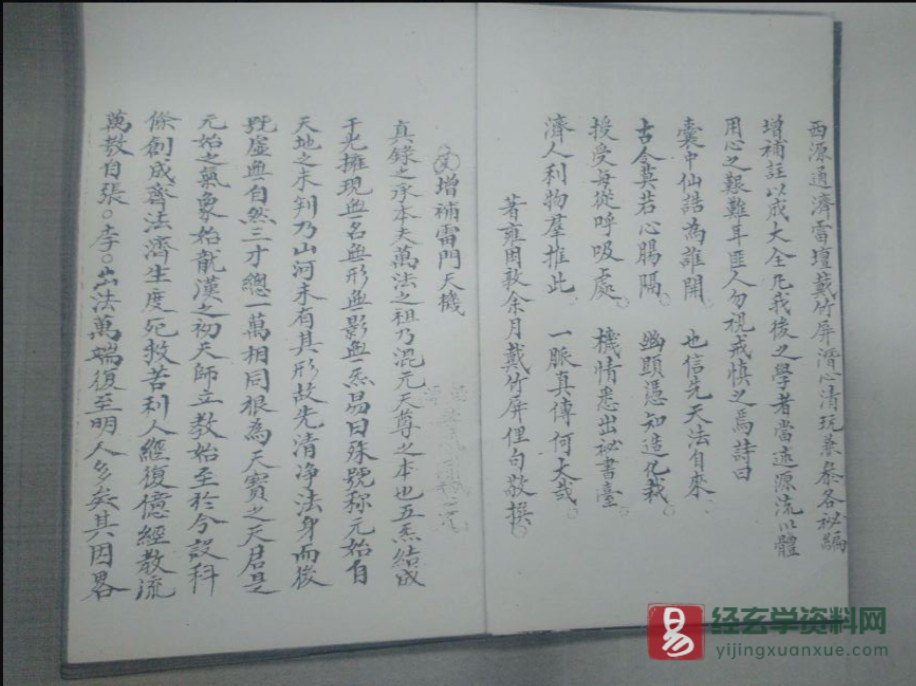 西源通濟雷壇戴竹屏潛心清玩兼叅各祕編
增補註以成大全凡我後之學者當遠源流以體
用心之艱難耳匪人勿視戒慎之焉詩曰
囊中仙誥為誰開 也信先天法自來
古今莫若心腸隔 幽顯憑知造化哉
授受每從呼吸處 機情悉出祕書臺
濟人利物羣推此 一脈真傳何大哉
著雍困敦余月戴竹屏俚句敬撰
增補雷門天機
真錄之承本夫萬法之祖乃混元天尊之本也五炁結成
于光擁現無名無形無影無炁易曰殊號称元始自
天地之未判乃山河未有其形故先清净法身而後
既虛無自然三才總一萬相同根為天寶之天君是
元始之氣象始龍漢之初天師立教始至於今設科
條創成齋法濟生度死救苦利人經復億經教流
萬教自張。李。出法萬端復至明人多矣其因畧
经玄学资料网
yijingxuanxue.com